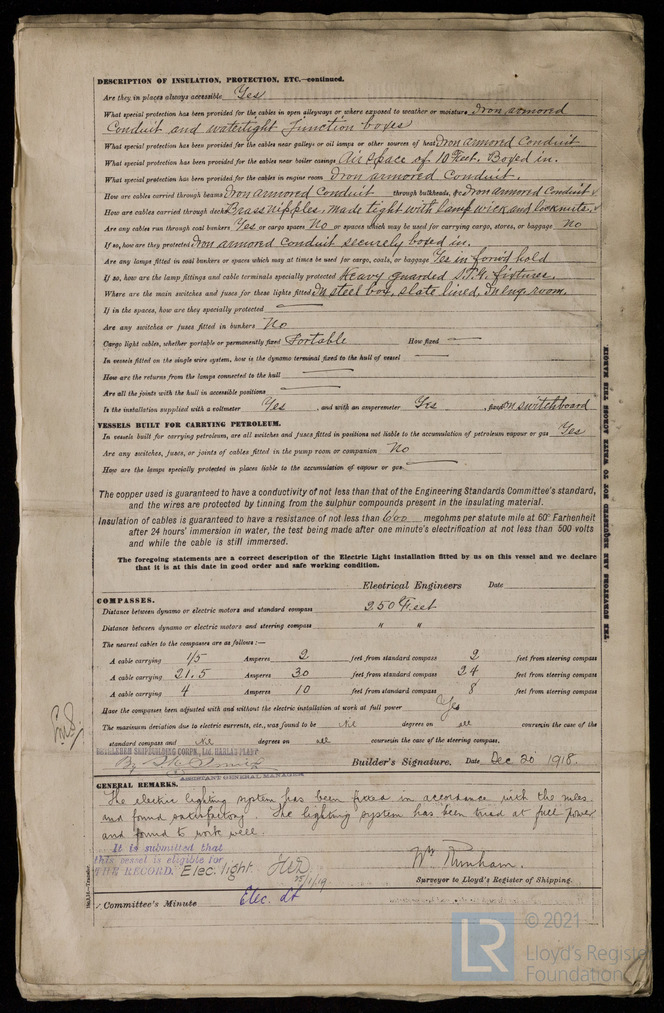 DESCRIPTION OF INSULATION, PROTECTION, ETC.—continued.
Are they in places always accessible Yes
What special protection has been provided for the cables in open alleyways or where exposed to weather or moisture Iron armored
Conduit and watertight Junction boxes
What special protection has been provided for the cables near galleys or oil lamps or other sources of heat Iron armored Conduit
What special protection has been provided for the cables near boiler casings Air space of 10 Feet. Boxed in.
What special protection has been provided for the cables in engine room Iron armored Conduit.
How are cables carried through beams Iron armored Conduit through bulkheads, &c. Iron armored Conduit &
How are cables carried through decks Brass Nipples, made tight with lamp wick and locknuts.
Are any cables run through coal bunkers Yes or cargo spaces No or spaces which may be used for carrying cargo, stores, or baggage No
If so, how are they protected Iron armored conduit securely boxed in.
Are any lamps fitted in coal bunkers or spaces which may at times be used for cargo, coals, or baggage Yes in forw'd hold
If so, how are the lamp fittings and cable terminals specially protected Heavy guarded fixtures.
Where are the main switches and fuses for these lights fitted In steel box, slate lined, In eng. room.
If in the spaces, how are they specially protected —
Are any switches or fuses fitted in bunkers No
Cargo light cables, whether portable or permanently fixed Portable How fixed —
In vessels fitted on the single wire system, how is the dynamo terminal fixed to the hull of vessel —
How are the returns from the lamps connected to the hull —
Are all the joints with the hull in accessible positions —
Is the installation supplied with a voltmeter Yes , and with an amperemeter Yes , fixed on switchboard
VESSELS BUILT FOR CARRYING PETROLEUM.
In vessels built for carrying petroleum, are all switches and fuses fitted in positions not liable to the accumulation of petroleum vapour or gas Yes
Are any switches, fuses, or joints of cables fitted in the pump room or companion No
How are the lamps specially protected in places liable to the accumulation of vapour or gas —
The copper used is guaranteed to have a conductivity of not less than that of the Engineering Standards Committee's standard,
and the wires are protected by tinning from the sulphur compounds present in the insulating material.
Insulation of cables is guaranteed to have a resistance of not less than 600 megohms per statute mile at 60° Farhenheit
after 24 hours' immersion in water, the test being made after one minute's electrification at not less than 500 volts
and while the cable is still immersed.
The foregoing statements are a correct description of the Electric Light installation fitted by us on this vessel and we declare
that it is at this date in good order and safe working condition.
Electrical Engineers Date
COMPASSES.
Distance between dynamo or electric motors and standard compass 250 Feet
Distance between dynamo or electric motors and steering compass " "
The nearest cables to the compasses are as follows:—
A cable carrying 1/5 Amperes 2 feet from standard compass 2 feet from steering compass
A cable carrying 21.5 Amperes 30 feet from standard compass 24 feet from steering compass
A cable carrying 4 Amperes 10 feet from standard compass 8 feet from steering compass
Have the compasses been adjusted with and without the electric installation at work at full power Yes
The maximum deviation due to electric currents, etc., was found to be Nil degrees on all course in the case of the
standard compass and Nil degrees on all course in the case of the steering compass.
BETHLEHEM SHIPBUILDING CORPN., Ltd. HARLAN PLANT
By
ASSISTANT GENERAL MANAGER
Builder's Signature. Date Dec 20 1918.
GENERAL REMARKS.
The electric lighting system has been fitted in accordance with the rules
and found satisfactory. The lighting system has been tried at full power
and found to work well.
It is submitted that
this vessel is eligible for
THE RECORD. Elec. light.
25/1/19
Surveyor to Lloyd's Register of Shipping.
Committee's Minute Elec. Lt
THE SURVEYORS ARE REQUESTED NOT TO WRITE ACROSS THIS MARGIN
LR © 2021
Lloyd's Register
Foundation